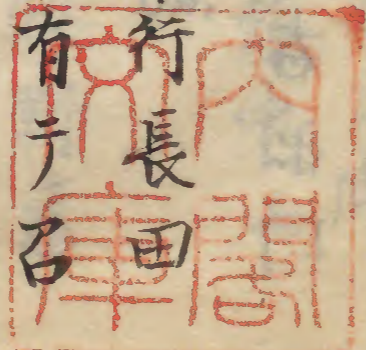 行長田
有テ召
内閣
文庫